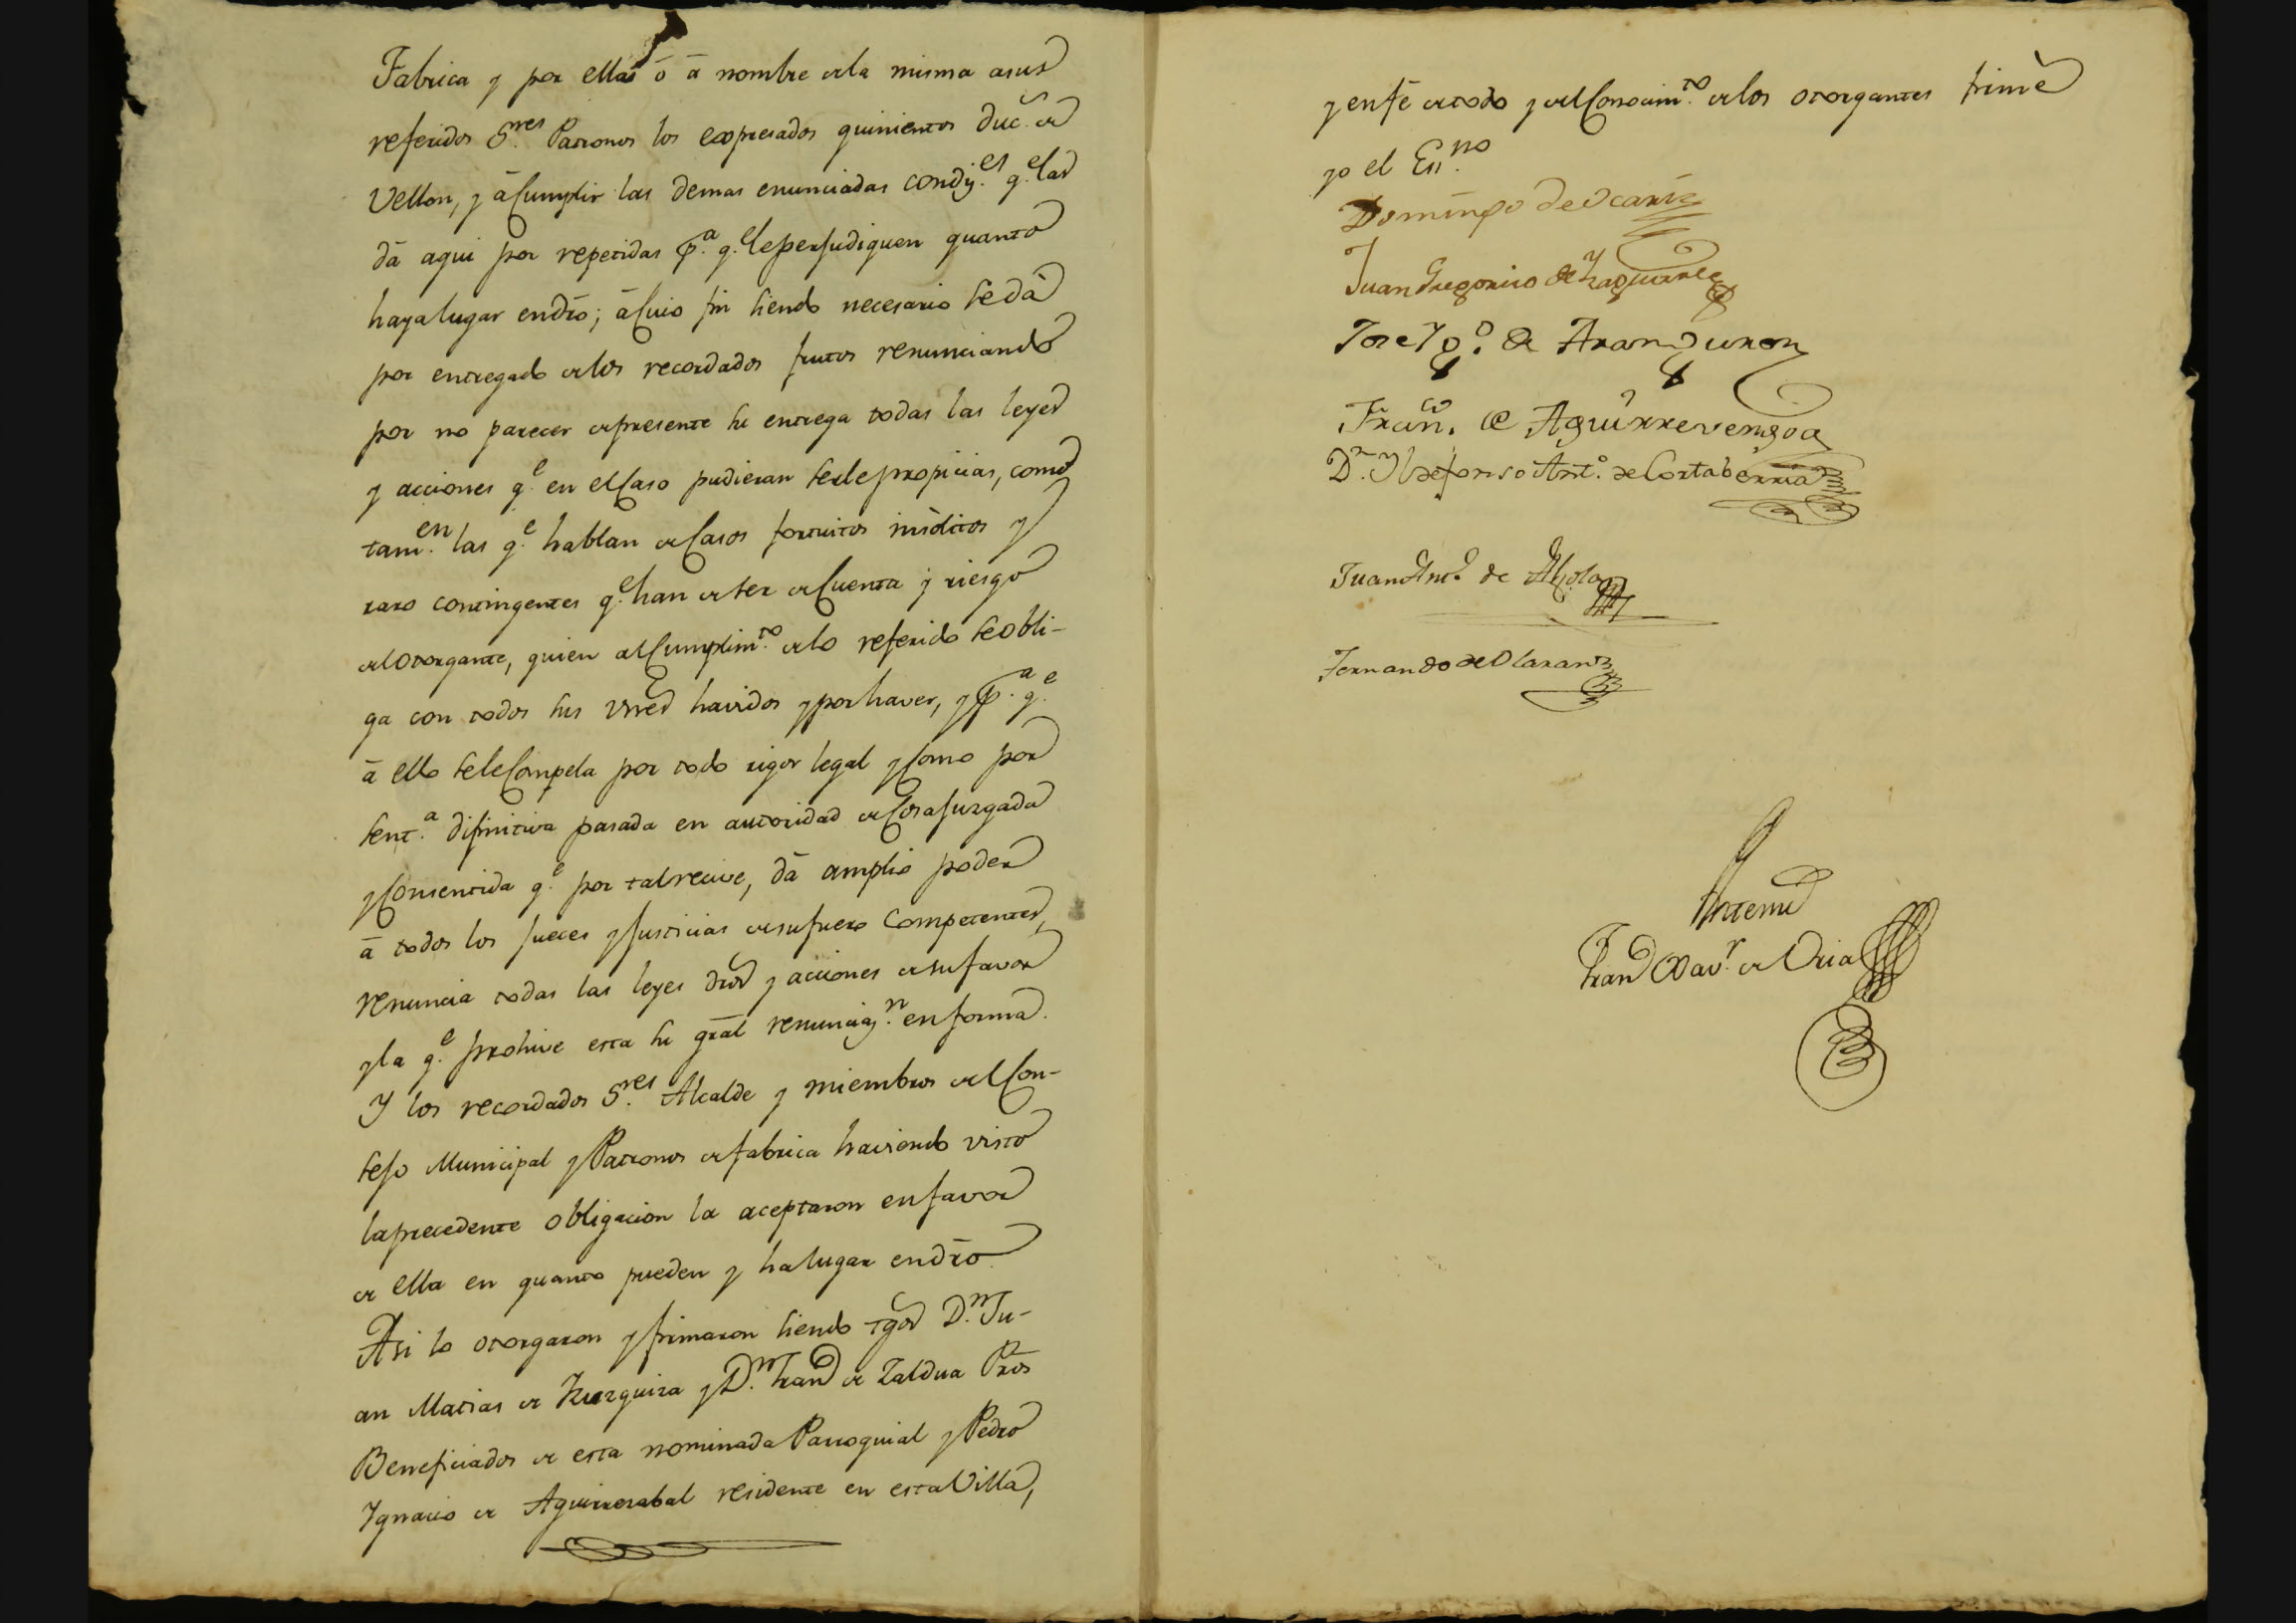 Fabrica y por ella ó á nombre de la misma a sus
referidos S.res Patronos los expresados quinientos duc.s de
Vellon, y á cumplir las demas enunciadas condiz.es q.e las
dá aqui por repetidas p.a q.e le perjudiquen quanto
haya lugar en dro; á cuio fin siendo necesario se dá
por entregado de los recordados frutos renunciando
por no parecer de presente su entrega todas las leyes
y acciones q.e en el caso pudieran serle propicias, como
tam.en las q.e hablan de Casos fortuitos insolitos y
raro contingentes q.e han de ser de Cuenta y riesgo
del otorgante, quien al Cumplim.to de lo referido se obli-
ga con todos sus vnes havidos y por haver, y p.a q.e
á ello se le Compela por todo rigor legal y Como por
sent.a difinitiva pasada en autoridad de Cosa Juzgada
y Consentida q.e por tal recive, dá amplio poder
á todos los Jueces y Justicias de su fuero Competentes,
renuncia todas las leyes dros y acciones de su favor
y la q.e prohive esta su gral renunciaz.n en forma.
Y los recordados S.res Alcalde y miembros del Con-
sejo Municipal y Patronos de fabrica haviendo visto
la precedente obligacion la aceptaron en favor
de ella en quanto pueden y ha lugar en dro
Asi lo otorgaron y firmaron siendo tgos D.n Ju-
an Matias de Yzuzquiza y D.n Fran.co de Zaldua Pros
Beneficiados de esta nominada Parroquial y Pedro
Ignacio de Aguirrezabal residente en esta Villa,
y en fé de todo y del Conocim.to de los otorgantes firmé
yo el Ess.no
Domingo de Ocariz
Juan Gregorio de Yzaguirre
Jose Yg.o de Aranguren
Fran.co de Aguirrevengoa
D.n Yldefonso Ant.o de Cortaberria
Juan Ant.o de Alzola
Fernando de Olaran
Antemi
Fran.co Xav.r de Oria